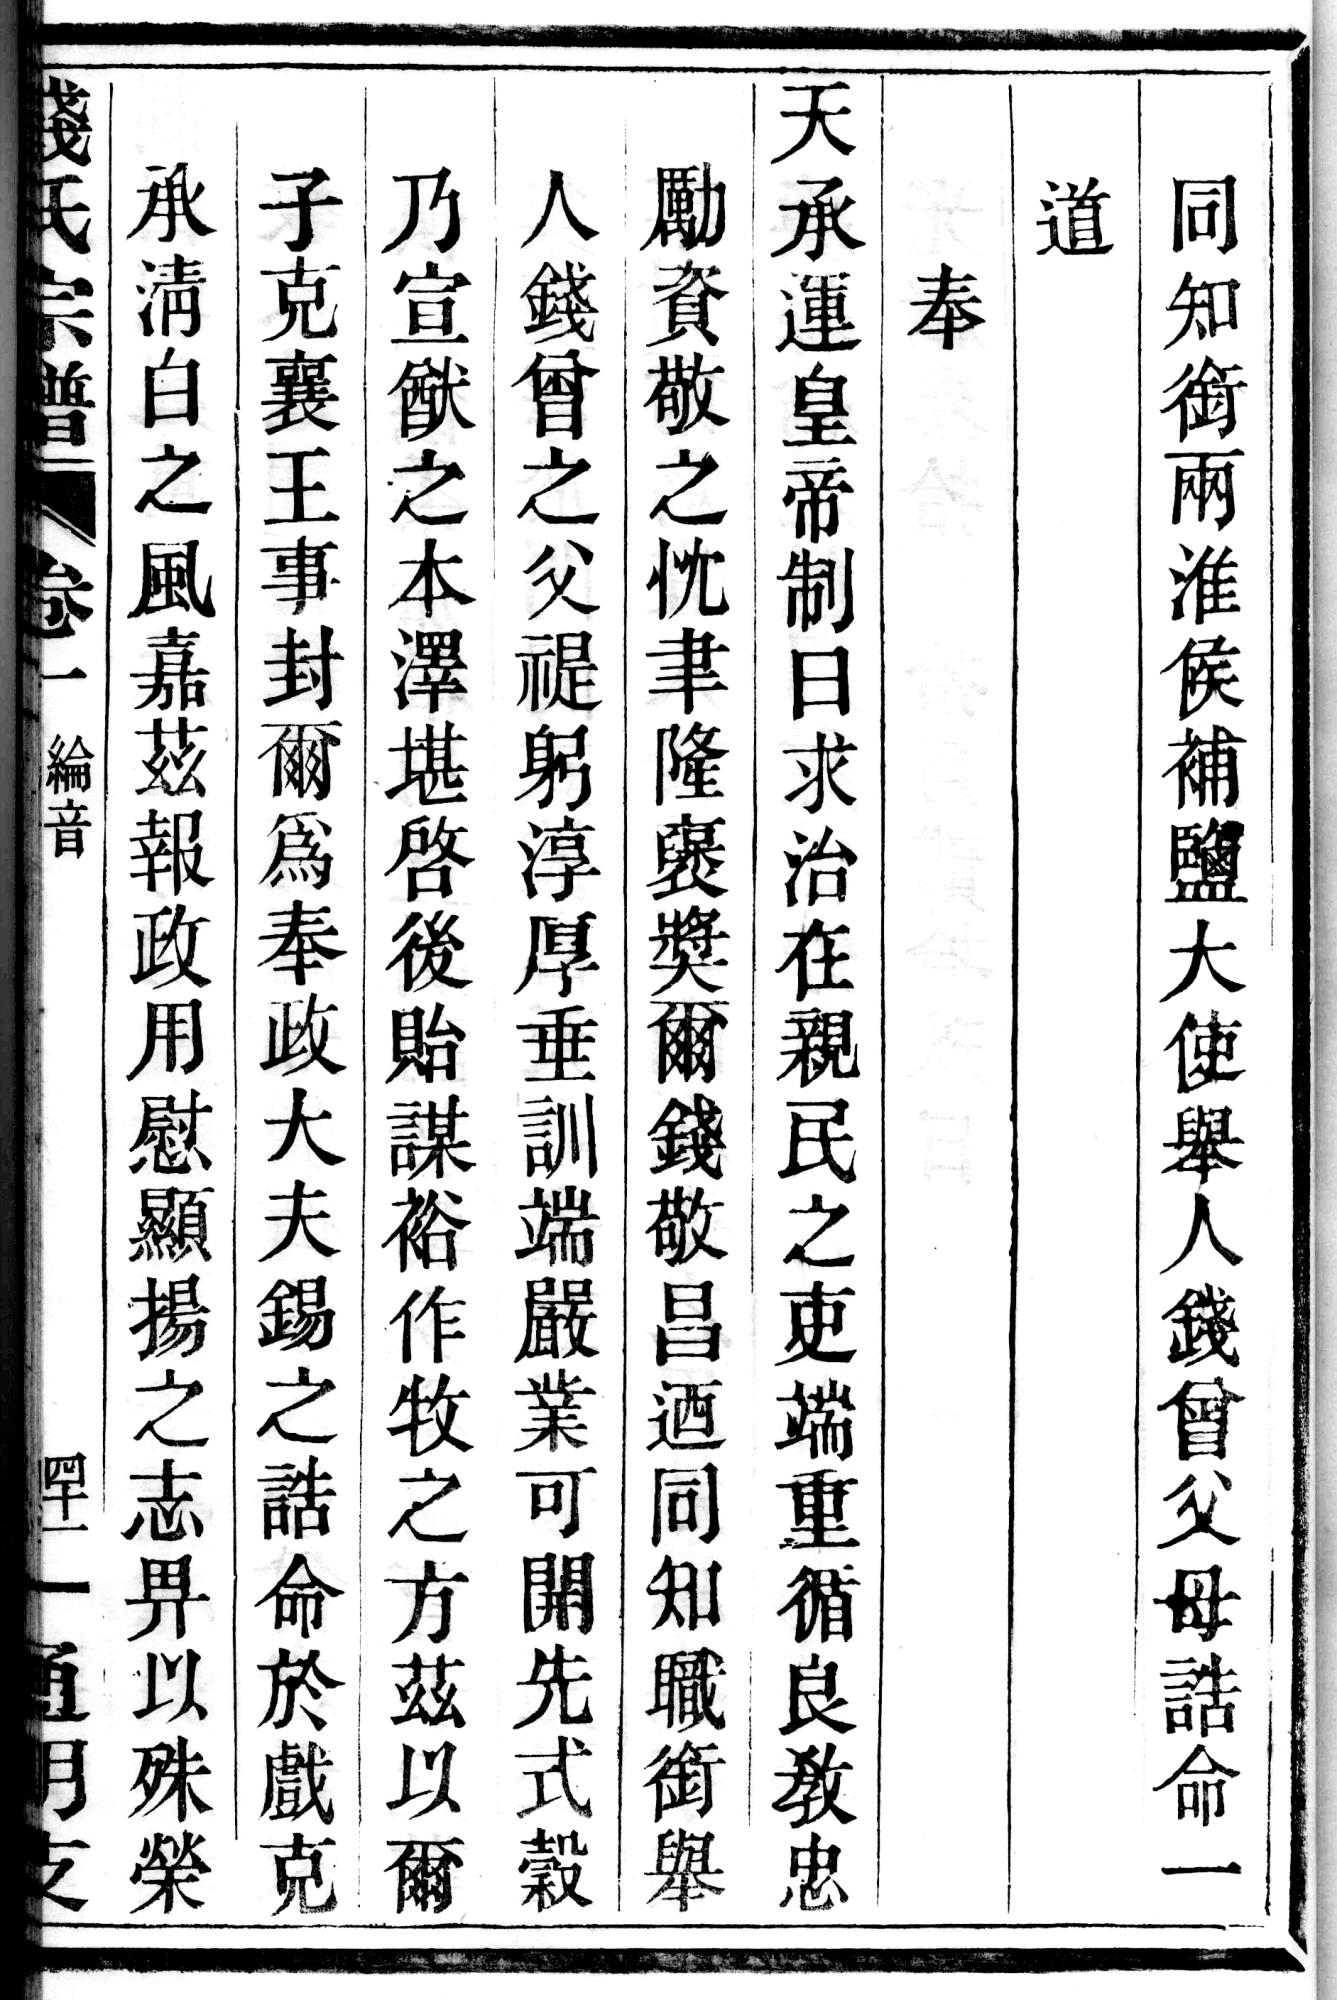 同知銜兩淮候補鹽大使舉人錢曾父母誥命一
道
奉
天承運皇帝制曰求治在親民之吏端重循良敎忠
勵資敬之忱聿隆襃奬爾錢敬昌迺同知職銜舉
人錢曾之父禔躬淳厚垂訓端嚴業可開先式穀
乃宣猷之本澤堪啓後貽謀裕作牧之方茲以爾
子克襄王事封爾爲奉政大夫錫之誥命於戲克
承淸白之風嘉茲報政用慰顯揚之志畀以殊榮
錢氏宗譜 卷一 綸音 四十一 通明支